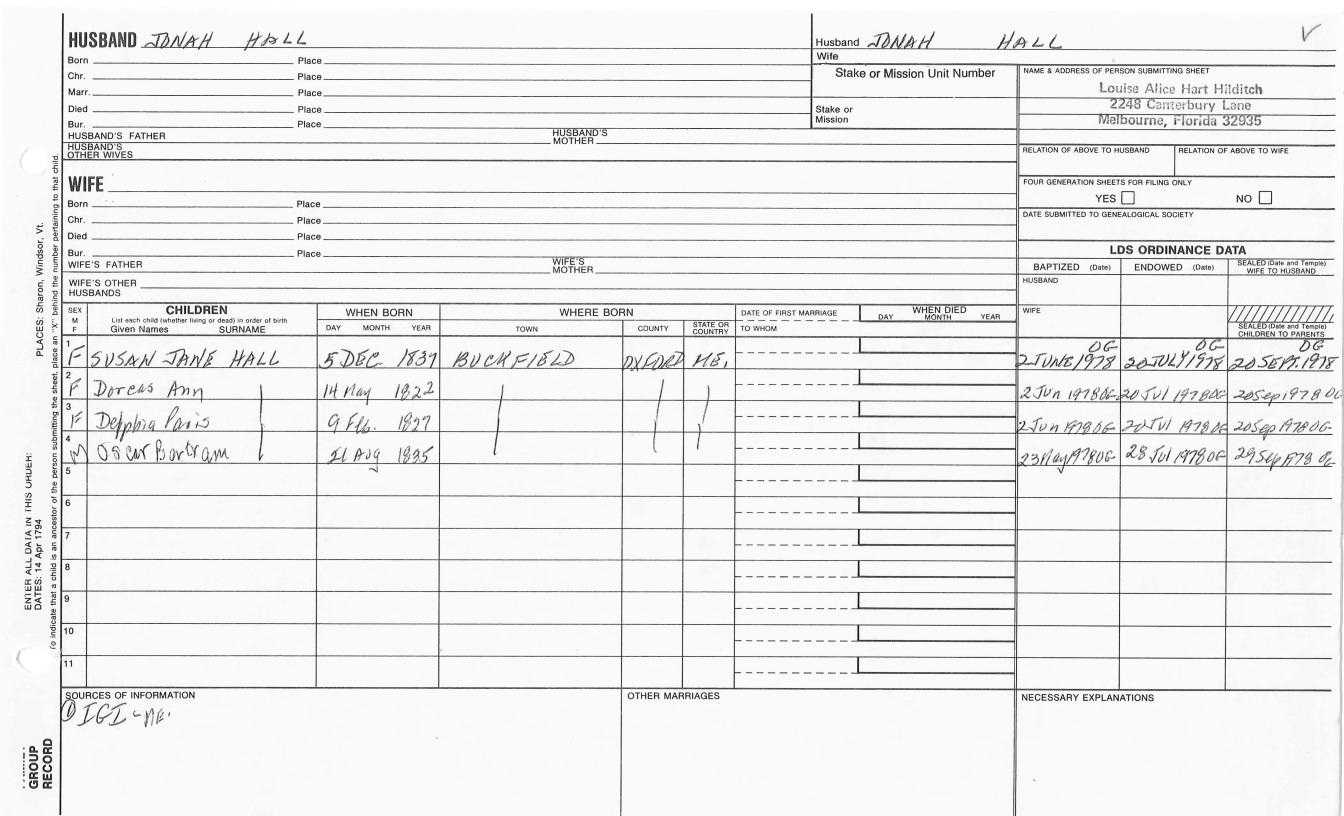 HUSBAND JONAH HALL
Born Place
Chr. Place
Marr. Place
Died Place
Bur. Place
HUSBAND'S FATHER HUSBAND'S MOTHER
HUSBAND'S OTHER WIVES
WIFE
Born Place
Chr. Place
Died Place
Bur. Place
WIFE'S FATHER WIFE'S MOTHER
WIFE'S OTHER HUSBANDS
Husband JONAH HALL
Wife
Stake or Mission Unit Number
Stake or Mission
NAME & ADDRESS OF PERSON SUBMITTING SHEET
Louise Alice Hart Hilditch
2248 Canterbury Lane
Melbourne, Florida 32935
RELATION OF ABOVE TO HUSBAND RELATION OF ABOVE TO WIFE
FOUR GENERATION SHEETS FOR FILING ONLY
YES NO
DATE SUBMITTED TO GENEALOGICAL SOCIETY
LDS ORDINANCE DATA
BAPTIZED (Date) ENDOWED (Date) SEALED (Date and Temple) WIFE TO HUSBAND
HUSBAND
WIFE
SEALED (Date and Temple) CHILDREN TO PARENTS
SEX M F
CHILDREN
List each child (whether living or dead) in order of birth
Given Names SURNAME
WHEN BORN
DAY MONTH YEAR
WHERE BORN
TOWN COUNTY STATE OR COUNTRY
DATE OF FIRST MARRIAGE
TO WHOM
WHEN DIED
DAY MONTH YEAR
1 F SUSAN JANE HALL 5 DEC BUCKFIELD OXFORD ME. OG 2 JUNE 1978 OG 20 JULY 1978 OG 20 SEPT. 1978
2 F Dorcas Ann 14 May 1822 2 Jun 1978 OG 20 Jul 1978 OG 20 Sep 1978 OG
3 F Paris 9 Feb. 2 Jun 1978 OG 20 Jul 1978 OG 20 Sep 1978 OG
4 M Oscar Bartram Aug 1835 23 May 1978 OG 28 Jul 1978 OG 29 Sep 1978 OG
5
6
7
8
9
10
11
SOURCES OF INFORMATION
① IGI - ME.
OTHER MARRIAGES
NECESSARY EXPLANATIONS
ENTER ALL DATA IN THIS ORDER:
DATES: 14 Apr 1794 PLACES: Sharon, Windsor, Vt.
To indicate that a child is an ancestor of the person submitting the sheet, place an "X" behind the number pertaining to that child.
GROUP
RECORD